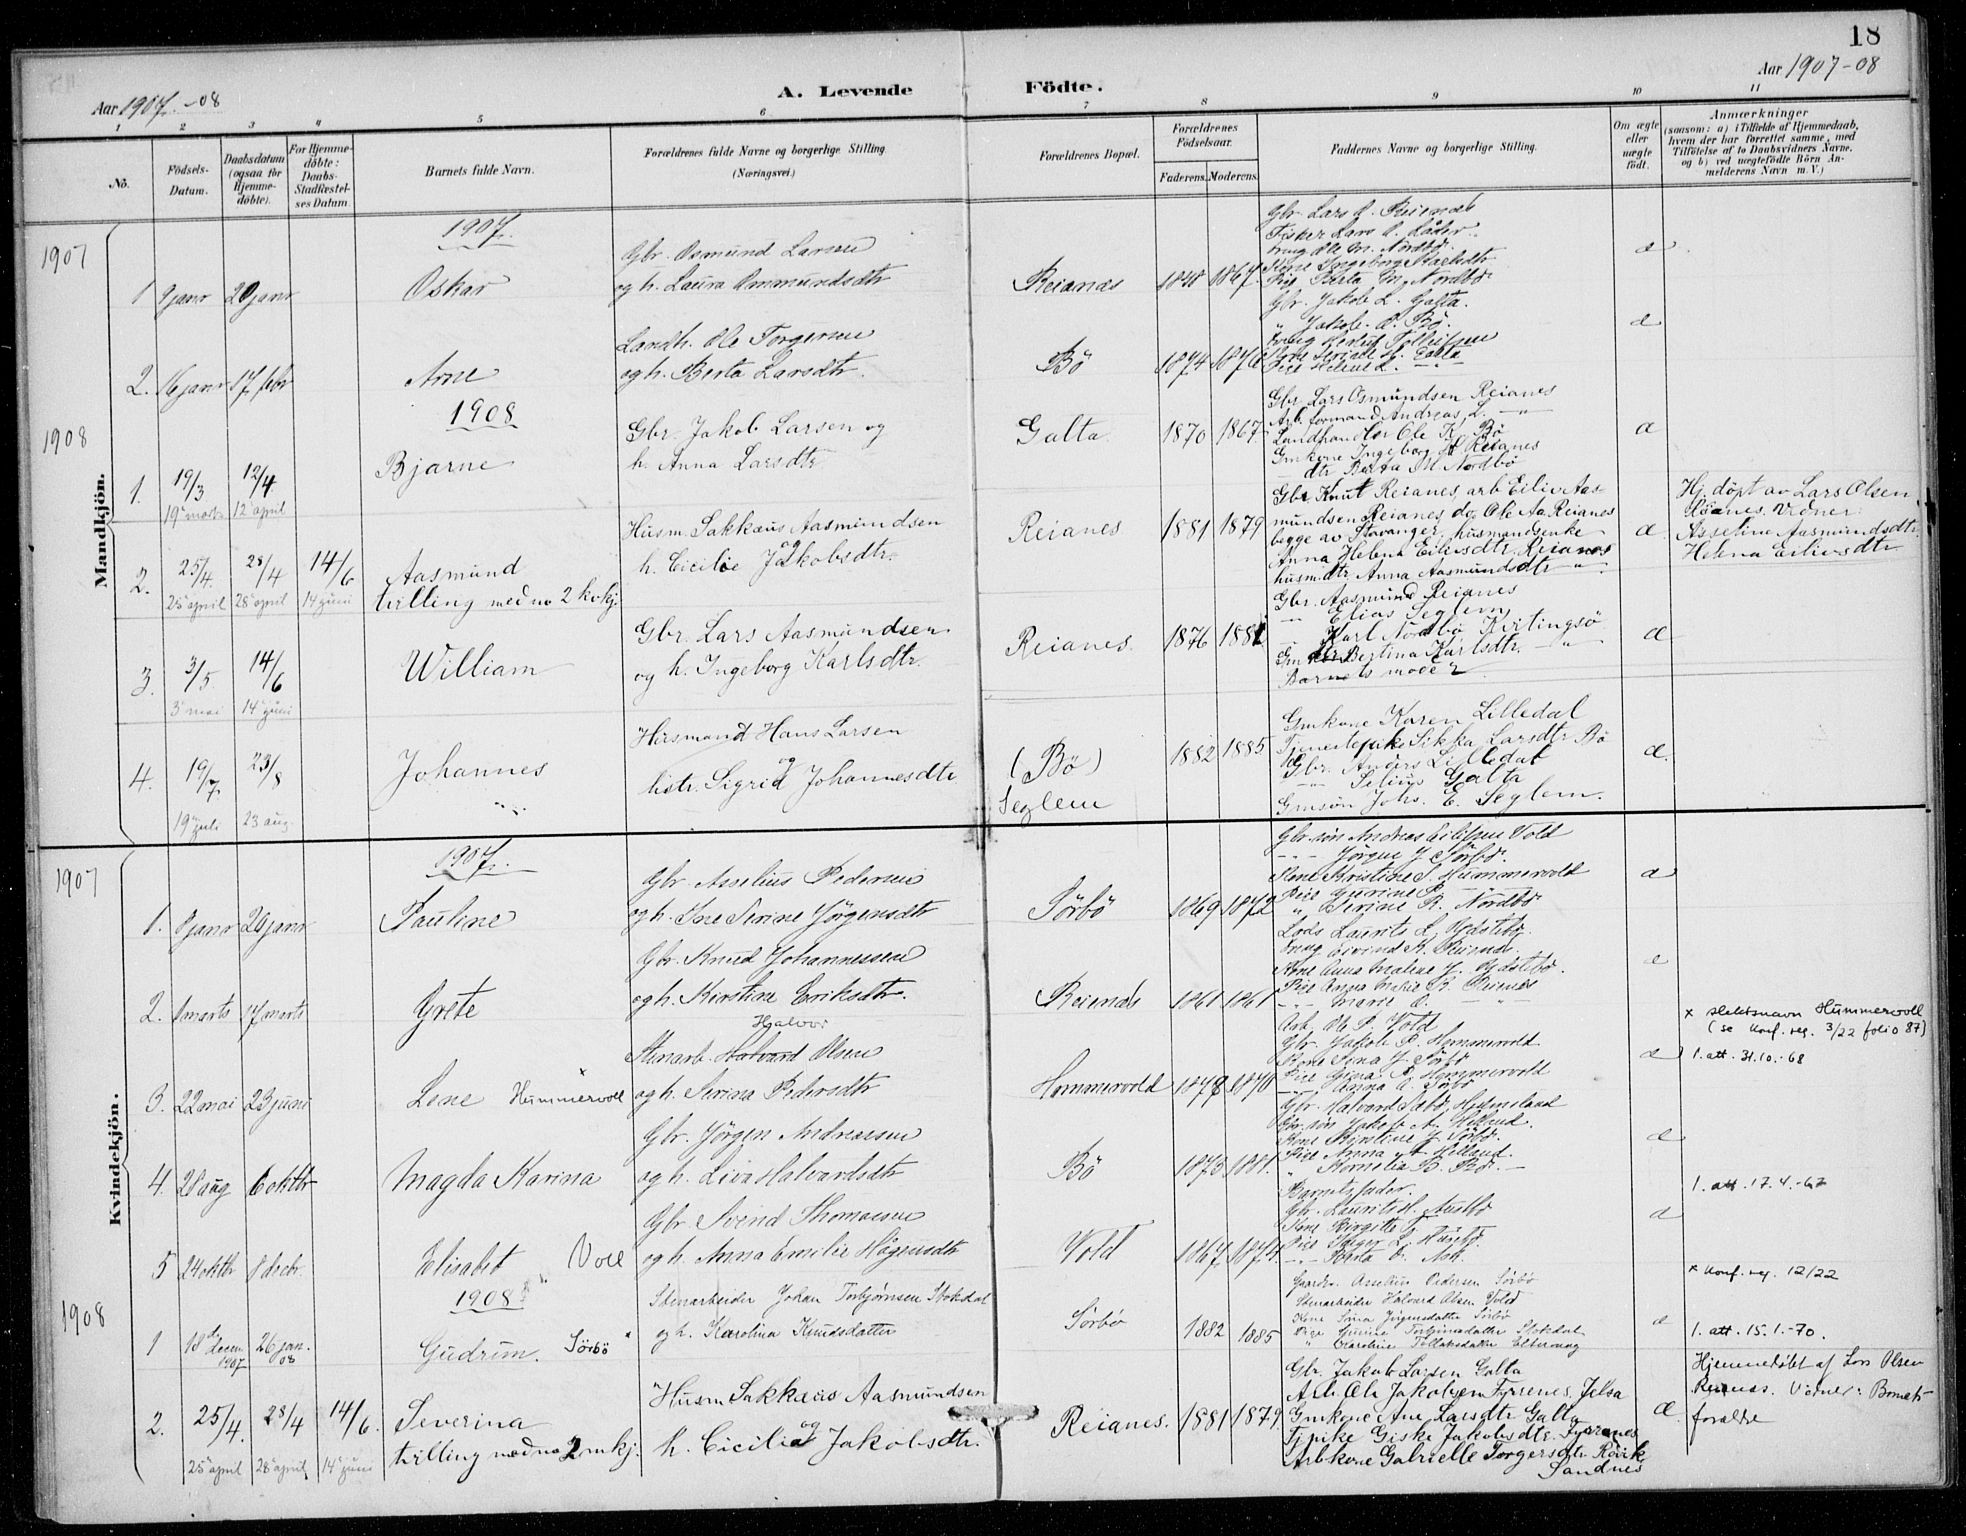 18
Aar 1907-08
A. Levende
Födte.
Aar 1907-08
1 2 3 4 5 6 7 8 9 10 11
No.
Födsels-Datum.
Daabsdatum (ogsaa for Hjemme-döbte).
For Hjemme-döbte: Daabs-Stadfæstel-ses Datum
Barnets fulde Navn.
Forældrenes fulde Navne og borgerlige Stilling
(Næringsvei.)
Forældrenes Bopæl.
Forældrenes Födselsaar.
Faderens. Moderens.
Faddernes Navne og borgerlige Stilling.
Om ægte eller uægte födt.
Anmærkninger
(saasom: a) i Tilfælde af Hjemmedaab,
hvem der har forrettet samme, med
Tilföielse af to Daabsvidners Navne,
og b) ved uægtefödte Börn An-
melderens Navn m. V.)
Mandkjön.
1907
1907.
1 9 janr 20 janr
Oskar
Gbr. Osmund Larsen
og h. Laura Ommundsdtr
Reianæs
1848 1867
Gbr. Lars O. Reienæs
Fisker Lars O.
Ung Ole M. Nordbø.
Kone Ingeborg
Pige Berta M. Nordbø
æ
2. 16 janr 17 febr
Arne
Landh. Ole Torgersen
og h. Berta Larsdtr.
Bö
1874 1876
Gbr. Jakob L. Galta.
" Jakob O. Bö.
æ
1908
1908
1. 19/3 12/4
19 marts 12 april
Bjarne
Gbr. Jakob Larsen og
h. Anna Larsdtr
Galta
1870 1867
Gbr Lars Osmundsen Reianes
Arb. formand Andreas L. — " —
Landhandler Ole K. Bö
Gmkone Ingeborg H Reianes
dtr Berta M Nordbö
æ
2. 25/4. 28/4 14/6
25 april 28 april 14 juni
Aasmund
tvilling med no 2 kvkj.
Husm. Sakkæus Aasmundsen
og
h. Cicilie Jakobsdtr.
Reianes
1881 1879
Gbr Knut Reianes, arb Eiliv Aas-
mundsen Reianes, do. Ole Aa. Reianes
begge av Stavanger, husmandsenke
Anna Helena Eilivsdtr. Reianes
husm.dtr. Anna Aasmundsdtr — " —
æ.
Hj. döpt av Lars Olsen
Reianes. Vidner:
Asseline Aasmundsdtr.
Helena Eilivsdtr
3. 3/5. 14/6
3 mai 14 juni
William
Gbr. Lars Aasmundsen
og h. Ingeborg Karlsdtr.
Reianes.
1876 1881
Gbr. Aasmund Reianes
— " — Elias Seglem
— " — Karl Nordbö Kvitingsö
Gm Bertina Karlsdtr. — " —
Barnets moder
æ
4. 19/7 23/8
19 juli 23 aug.
Johannes
Husmand Hans Larsen
og
hstr. Sigrid Johannesdtr
(Bö)
Seglem
1882 1885
Gmkone Karen Lilledal
Tjenestepike Sikka Larsdtr Bö
Gbr. Anders Lilledal
— " — Selius Galta
Gmsön Johs. E. Seglem.
æ.
Kvindekjön.
1907
1907.
1. 8 janr 20 janr
Paulene
Gbr Asselius Pedersen
og h. Ine Serine Jörgensdtr
Sörbö
1869 1872
Gbr. sön Andreas Eilifsen Vold
— " — Jörgen J Sörbø.
Kone Kristine S. Hummervold
Pice Gurine P. — " —
" Serine R. Nordbø
æ
2. 1 marts 17 marts
Grete
Gbr. Knud Johannessen
og h. Kirstine Eriksdtr.
Reienæs
1861 1861
Lods Laurits L.
Ung Eivind K. Reienæs.
Kone Anna Malene J.
Pice Anna Marie K. Reienæs
— " — Marie O. — " —
æ
3. 22 mai 23 juni
Lene Hummervoll ×
Halvor
Stenarb. Halvard Olsen
og h. Serina Pedersdtr
Hommervold
1878 1870
Arb. Ole P. Vold
Gbr. Jakob P. Hommervold
Kone Sina J. Sörbø
Pice Gina P. Hommervold
— " — Anna A. Sörbø
æ
× slektsnavn Hummervoll
(se konf. reg. 3/22 folio 87)
1. att. 31.10.-68
4. 20 aug 6 oktbr
Magda Karina
Gbr. Jörgen Andreassen
og h. Liva Halvardsdtr
Bö
1873 1881.
Gbr. Halvard
Gbr. sön Jakob A. Helland.
Kone Kirstine J. Sörbø.
Pice Anna A. Helland.
" Kornelia B. Bø. —
æ
1. att. 17.4.-67
5 24 oktbr 8 decbr.
Elisabet Voll
Gbr Svend Thomassen
og h. Anna Emilie Högensdtr
Vold
1867 1874.
Barnets fader.
Gbr. Laurits H. Austbø
Kone Birgitte T.
— " — Berta O. Ask.
æ
× Konf. reg. 12/22
1908
1908
1 18 de Decem. 1907 26 jan. 08
Gudrun. Sörbö ×
Stenarbeider Johan Torbjørnsen Stokdal
og h. Karolina Knudsdatter
Sörbö
1882 1885
Gaardbr. Asselius Pedersen Sörbø
Stenarbeider Halvard Olsen Vold
Kone Sina Jörgensdatter Sörbö
Pige Gurine Torbjörnsdatter Stokdal
" Karoline Tollaksdatter
æ
1. att. 15.1.-70.
2. 25/4. 28/4 14/6.
25 april 28 april 14 juni
Severina
tvilling med no 2 mkj.
Husm Sakkæus Aasmundsen
og
h. Cicilia Jakobsdtr.
Reianes.
1881 1879
Gbr. Jakob Larsen Galta
Arb. Ole Jakobsen Fyrrenes, Jelsa
Gmkone Ane Larsdtr Galta
Tj. pike Giske Jakobsdtr. Fyrrenes
Arbkone Gabrielle Torgersdtr. Rövik
Sandnes
æ.
Hjemmedöbt af Lars Olsen
Reienæs. Vidner: Barnets
forældre